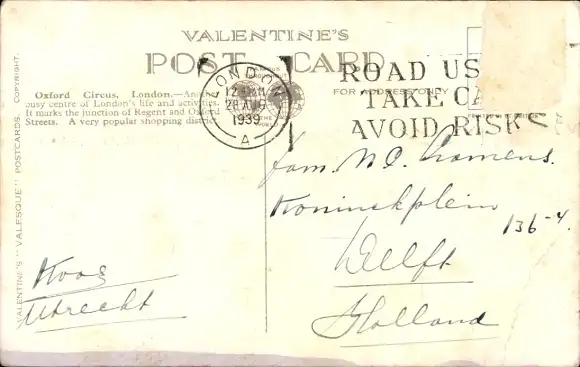 VALENTINE'S
POST CARD
FOR ADDRESS ONLY
COPYRIGHT.
VALENTINE'S "VALESQUE" POSTCARDS.
Oxford Circus, London.—An
busy centre of London's life and activities.
It marks the junction of Regent and Oxford
Streets. A very popular shopping district.
LONDON
12
28 AUG
1939
A
ROAD US
TAKE CA
AVOID RISKS
Fam. Cramens.
Koninckplein
136-4.
Delft
Holland
Koos
Utrecht